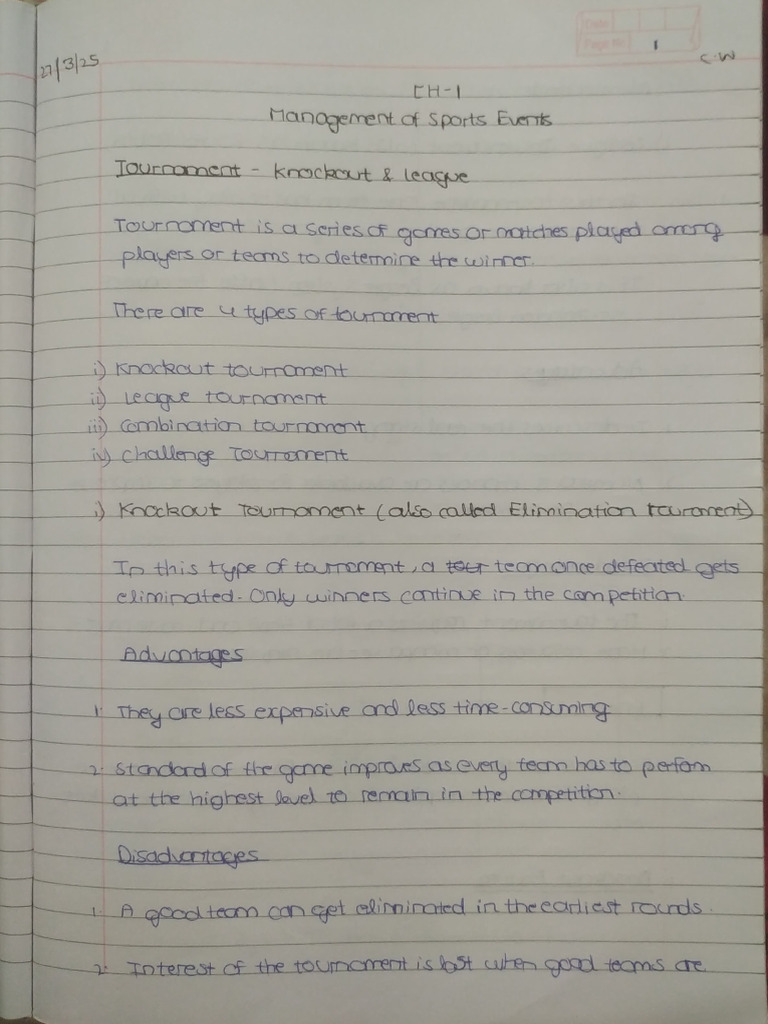 Date
Page No. 1
27/3/25
C.W
CH-1
Management of Sports Events
Tournament - Knockout & League
Tournament is a series of games or matches played among
players or teams to determine the winner.
There are 4 types of tournament
i) Knockout tournament
ii) League tournament
iii) Combination tournament
iv) Challenge Tournament
i) Knockout Tournament (also called Elimination tournament)
In this type of tournament, a team once defeated gets
eliminated. Only winners continue in the competition.
Advantages
1. They are less expensive and less time-consuming
2. Standard of the game improves as every team has to perform
at the highest level to remain in the competition.
Disadvantages
1. A good team can get eliminated in the earliest rounds.
2. Interest of the tournament is lost when good teams are